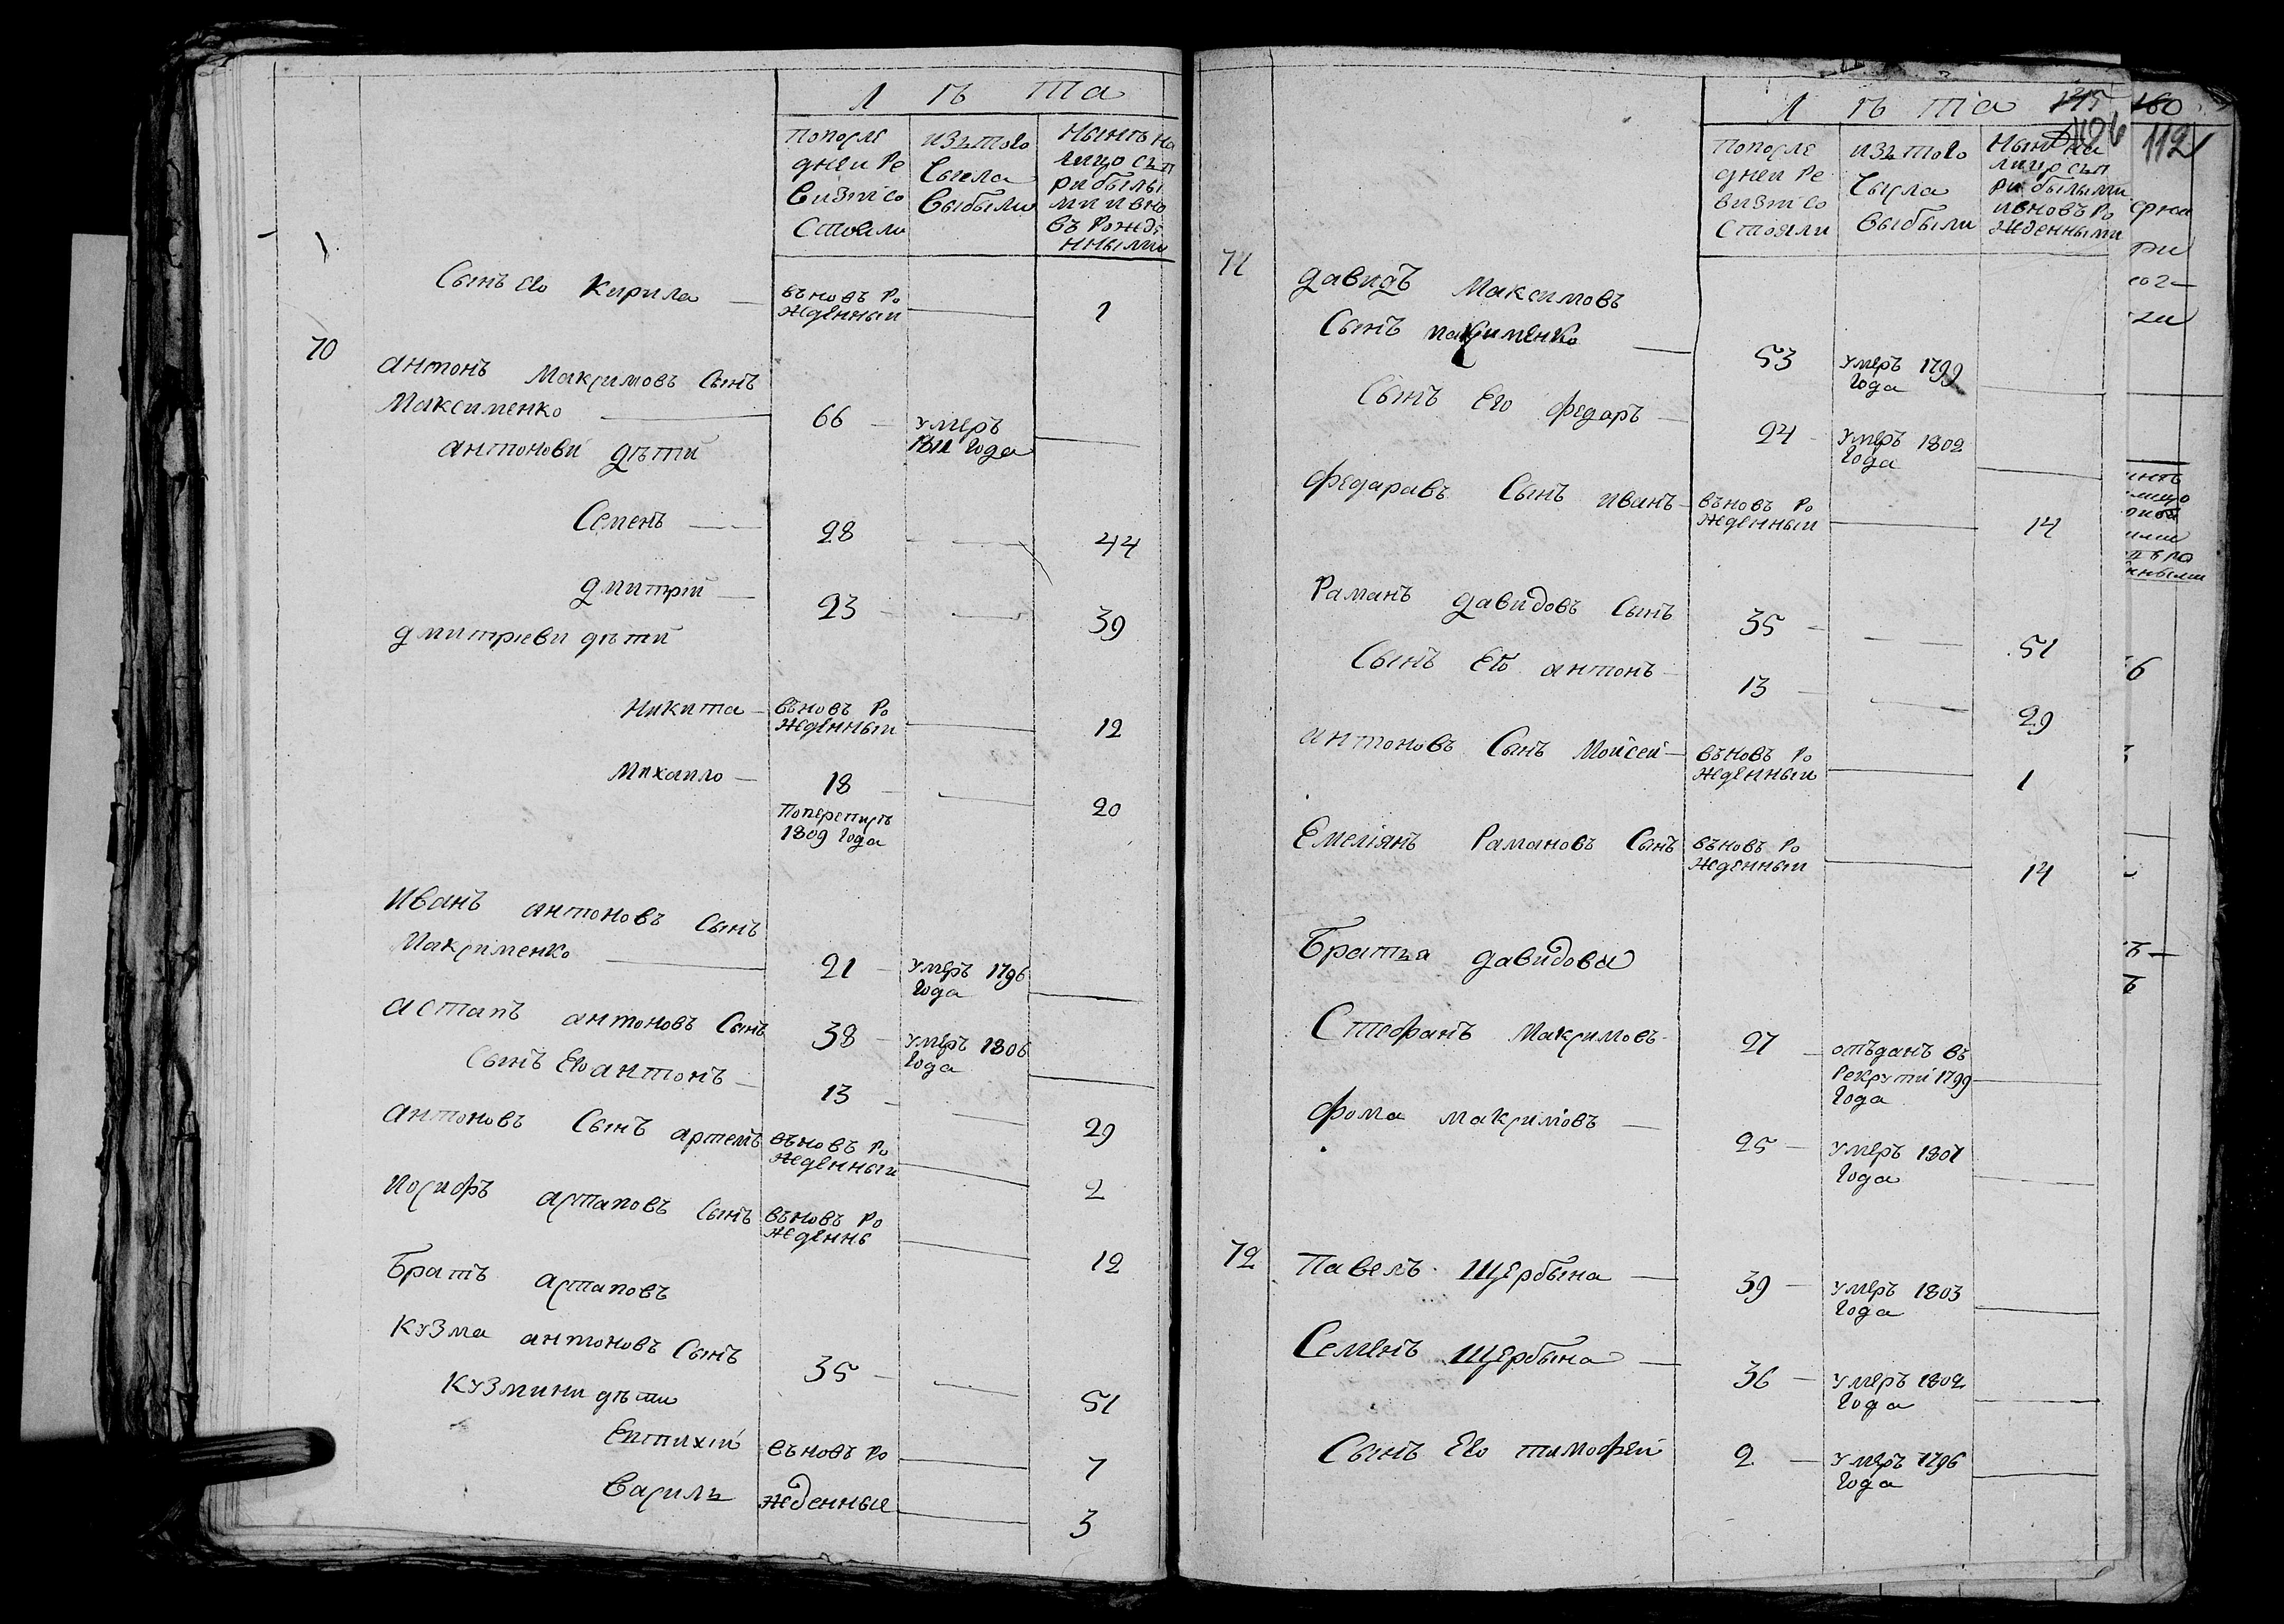 Лѣта
Попосле
дней Ре
визiи со
Стояли
изътого
Числа
выбыли
Нынѣ на
лицо съп
рибылы
ми ивно
въ Рожде
нными
Сынъ Его Кирила — въновъ Ро
жденный — 1
70
антонъ Максимовъ Сынъ
Максименко — 66 — умеръ
1811 Года
антонови дѣти
Семенъ — 28 — 44
дмитрiй — 23 — 39
дмитриеви дѣти
Никита — въновъ Ро
жденный — 12
Михаило — 18 — 20
Поперепи
1809 Года
Иванъ антоновъ Сынъ
Максименко — 21 — умеръ 1796
Года
астапъ антоновъ Сынъ 38 — умеръ 1806
Года
Сынъ Его антонъ — 13 — 29
антоновъ Сынъ артемъ въновъ Ро
жденный — 2
Иосифъ астаповъ Сынъ въновъ Ро
жденны — 12
Братъ астаповъ
Кузма антоновъ Сынъ 35 — 51
Кузмини дѣти
Евтихiй въновъ Ро — 7
Василь жденные — 3
Лѣта 126
Попосле
дней Ре
визiи со
Стояли
изътого
Числа
выбыли
Нынѣ на
лицо съп
рибылыми
ивновъ Ро
жденными
71
давидъ Максимовъ
Сынъ Максименко — 53 умеръ 1799
Года
Сынъ Его федаръ — 24 — умеръ 1802
Года
федаравъ Сынъ иванъ — въновъ Ро
жденный — 14
Раманъ давидовъ Сынъ 35 — 51
Сынъ Его антонъ — 13 — 29
антоновъ Сынъ Мойсей — въновъ Ро
жденный — 1
Емелiянъ Рамановъ Сынъ въновъ Ро
жденный — 14
Братья давидовы
Стефанъ Максимовъ — 27 — отъданъ въ
Рекрути 1799
Года
фома максимовъ — 25 — умеръ 1801
Года
72
Павелъ Щербына — 39 — умеръ 1803
Года
Семенъ Щербына — 36 — умеръ 1802
Года
Сынъ Его тимофей 2 — умеръ 1796
Года
112